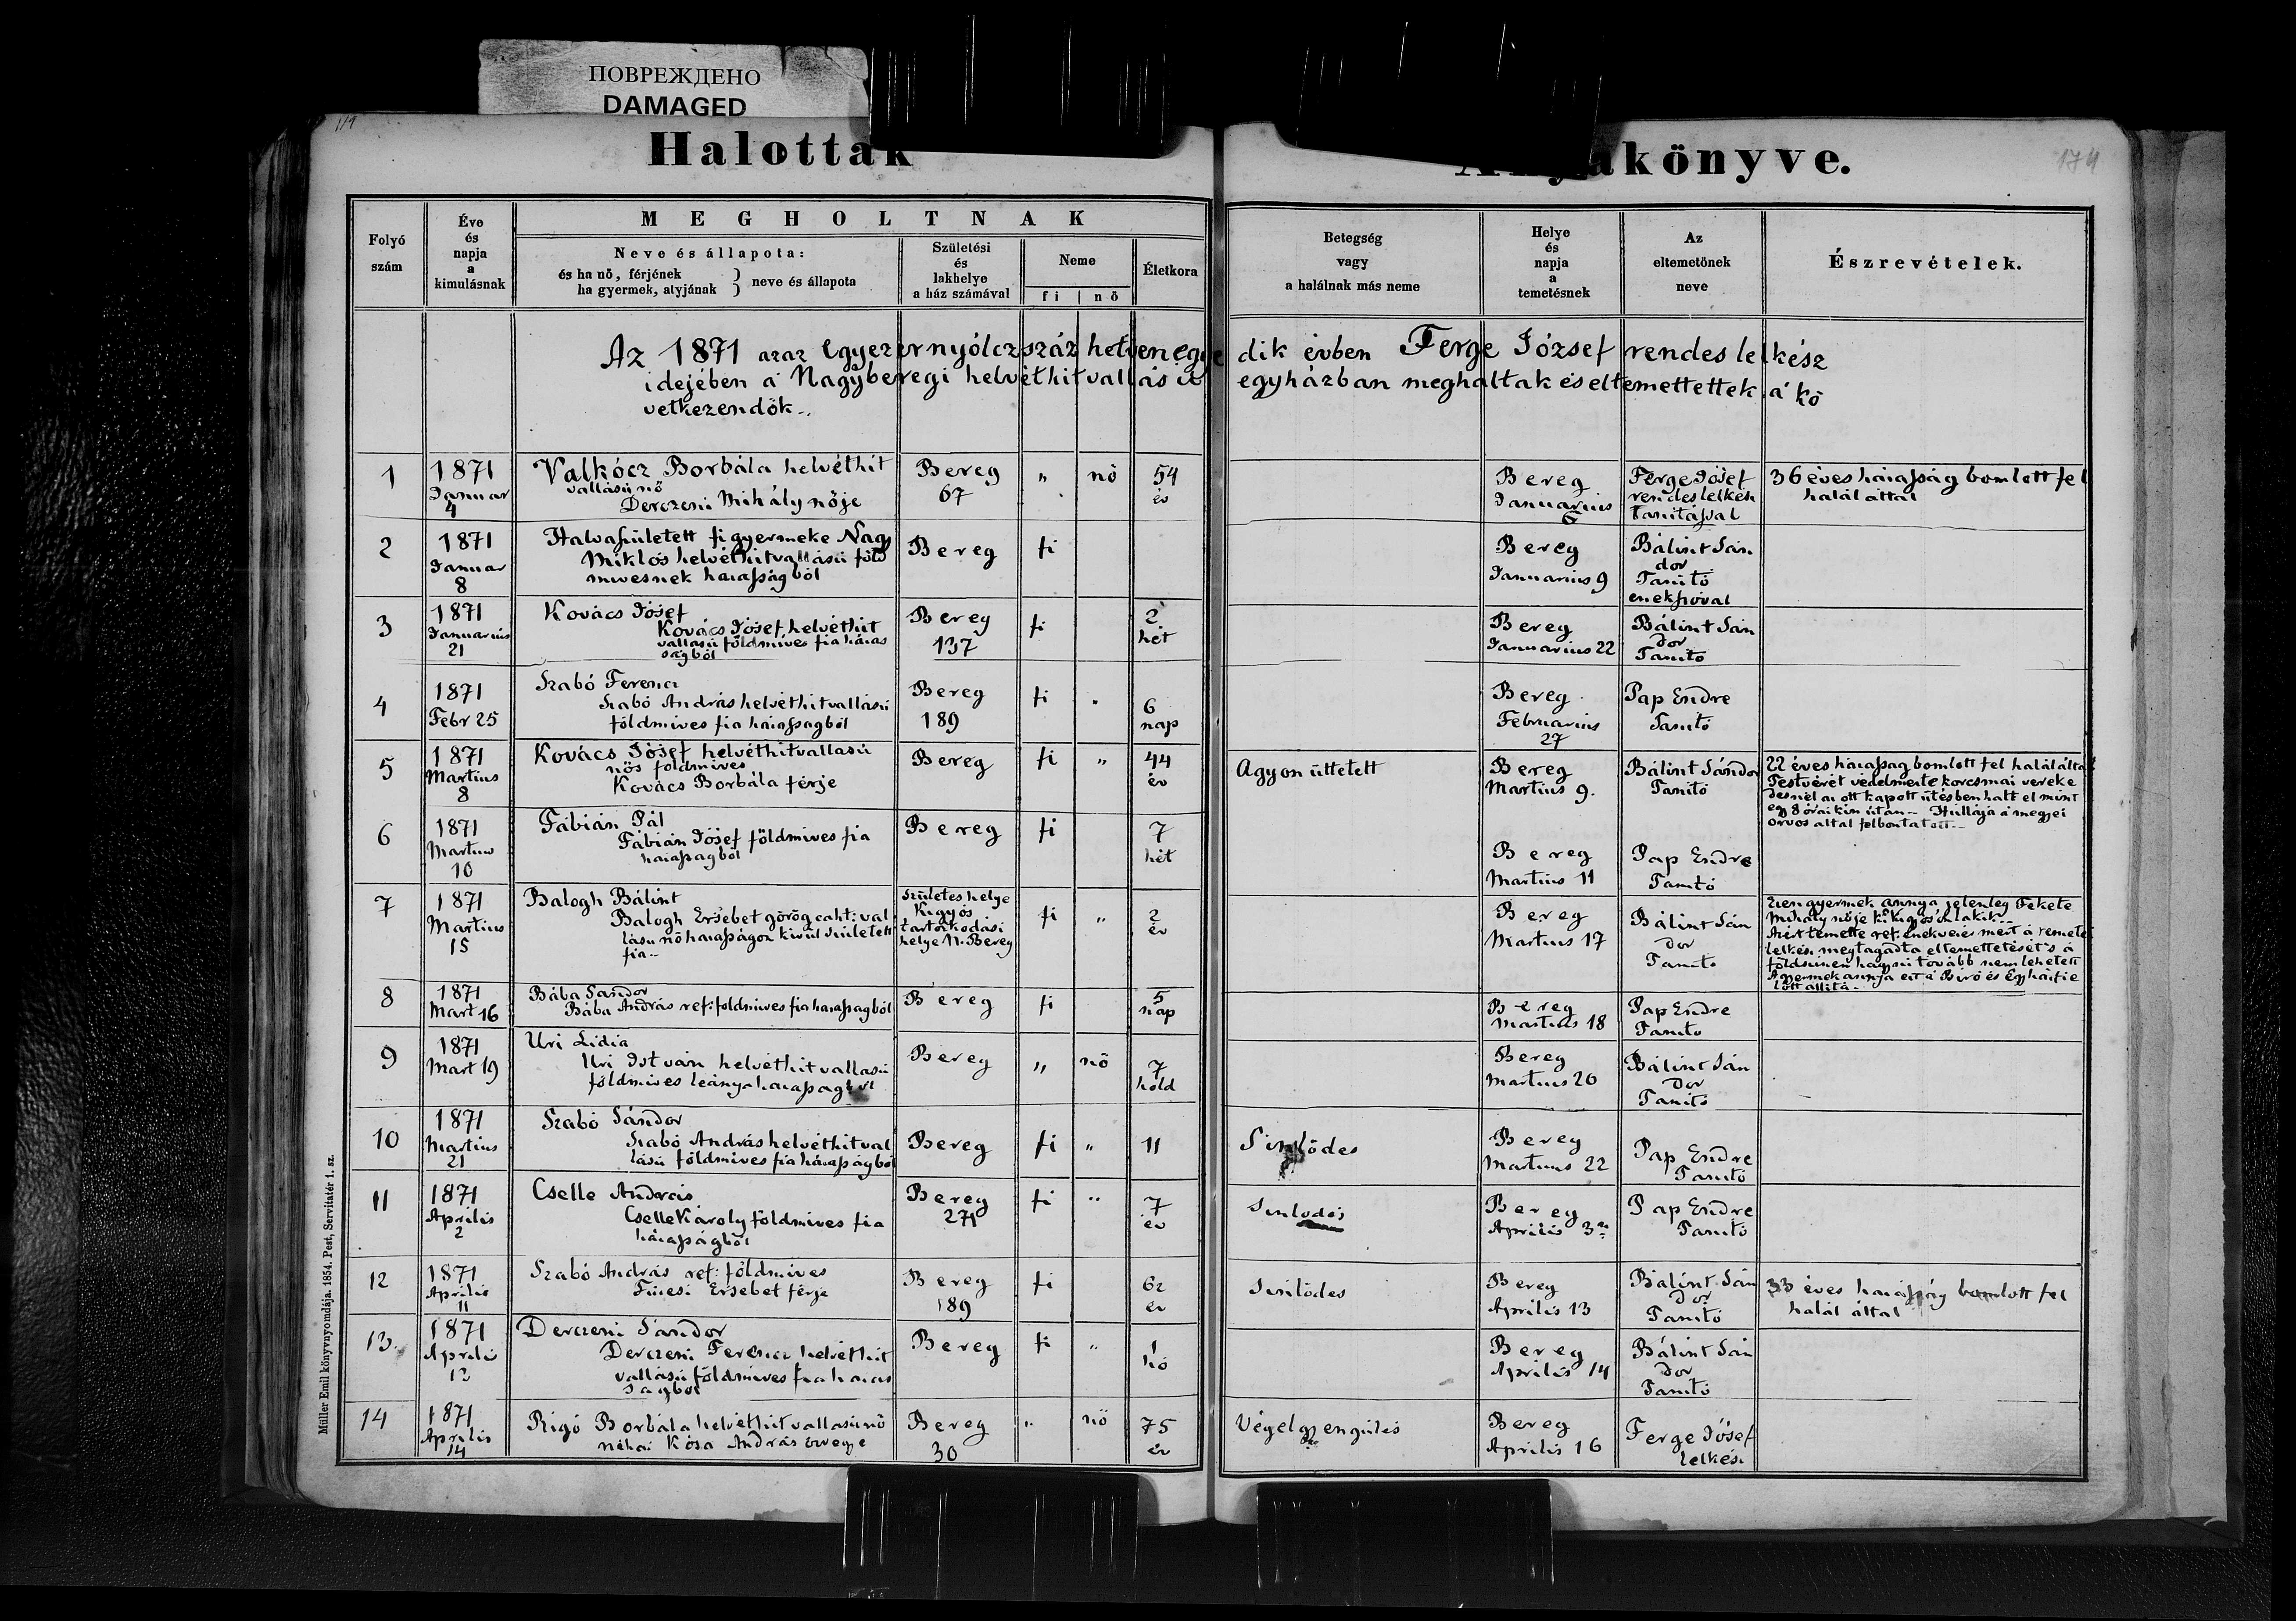 ПОВРЕЖДЕНО
DAMAGED
Halottak
Anyakönyve.
174
MEGHOLTNAK
Folyó
szám
Éve
és
napja
a
kimulásnak
Neve és állapota:
és ha nő, férjének
ha gyermek, atyjának } neve és állapota
Születési
és
lakhelye
a ház számával
Neme
fi | nő
Életkora
Betegség
vagy
a halálnak más neme
Helye
és
napja
a
temetésnek
Az
eltemetőnek
neve
Észrevételek.
Az 1871 azaz Egyezernyólczszáz hetvenegye dik évben Ferge József rendes lelkész
idejében a Nagyberegi helvéthitvallásu egyházban meghaltak és eltemettettek a kö
vetkezendők..
1
1871
Januar
4
Valkócz Borbála helvéthit
vallásü nő
Derczeni Mihály nője
Bereg
67
"
nö
54
év
Bereg
Januarius
6
Ferge Jósef
rendes lelkész
Tanitással
36 éves házasság bomlott fel
halál által
2
1871
Januar
8
Halvaszületett fi gyermeke Nagy
Miklós helvéthitvallású föld
mivesnek házasságból
Bereg
fi
Bereg
Januarius 9
Bálint Sán
dor
Tanitó
enekszóval
3
1871
Januarius
21
Kovács Jósef
Kovács Jósef helvéthit
vallasü földmives fia házas
ságból
Bereg
137
fi
2
hét
Bereg
Januarius 22
Bálint Sán
dor
Tanito
4
1871
Febr 25
Szabó Ferencz
Szabó András helvéthitvallású
földmives fia házasságból
Bereg
189
fi
"
6
nap
Bereg
Februarius
27
Pap Endre
Tanitó
5
1871
Martius
8
Kovács Jósef helvéthitvallasü
nős földmives
Kovács Borbála férje
Bereg
fi
"
44
év
Agyon üttetett
Bereg
Martius 9.
Bálint Sándor
Tanitó
22 éves házasság bomlott fel halál által
Testvérét védelmezte korcsmai vereke
désnél az ott kapott ütésben halt el mint
egy 8 órai kin után.. Hullája a megyei
orvos által felbontatott..
6
1871
Martius
10
Fábián Pál
Fábián Jósef földmives fia
házasságból
Bereg
fi
7
hét
Bereg
Martius 11
Pap Endre
Tanitó
7
1871
Martius
15
Balogh Bálint
Balogh Ersébet görög cath: val
lásu nő házaságon kivül született
fia..
születes helye
Kigyós
tartozkodási
helye N. Bereg
fi
"
2
év
Bereg
Martius 17
Bálint Sán
dor
Tanito
Ezen gyermek annya jelenleg Fekete
Mihály nője ki kigyóson lakik..
Azért temette ref. enekvezér mert a remetei
lelkész megtagadta eltemettetését s a
földszinén hagyni tovább nem lehetett
A gyermek annya ezt a Biró és Egyházfi e
lőtt állitá..
8
1871
Mart 16
Bába Sandor
Bába András ref: földmives fia házasságból
Bereg
fi
5
nap
Bereg
Martius 18
Pap Endre
Tanito
9
1871
Mart 19
Uri Lidia
Uri István helvéthitvallasü
földmives leánya házasságból
Bereg
"
nö
7
hold
Bereg
Martius 20
Bálint Sán
dor
Tanitó
10
1871
Martius
21
Szabó Sándor
Szabó András helvéthitval
lásü földmives fia házasságból
Bereg
fi
"
11
Sinlődes
Bereg
Martius 22
Pap Endre
Tanitó
11
1871
Aprilis
2
Cselle András
Cselle Károly földmives fia
házasságból
Bereg
271
fi
"
7
év
Sinlodés
Bereg
Aprilis 3
Pap Endre
Tanitó
12
1871
Aprilis
11
Szabó András ref: földmives
Füzesi Ersebet férje
Bereg
189
fi
62
év
Sinlödes
Bereg
Aprilis 13
Bálint Sán
dor
Tanitó
33 éves házasság bomlott fel
halál által
13.
1871
Aprilis
12
Derczeni Sándor
Derczeni Ferencz helvéthit
vallású földmives fia házas
ságból
Bereg
fi
"
1
hó
Bereg
Aprilis 14
Bálint Sán
dor
Tanitó
14
1871
Aprilis
14
Rigó Borbála helvéthitvallasü nö
néhai Kósa András özvegye
Bereg
30
"
nö
75
év
Végelgyengülés
Bereg
Aprilis 16
Ferge Jósef
lelkész
Müller Emil könyvnyomdája. 1854. Pest, Servitatér 1. sz.